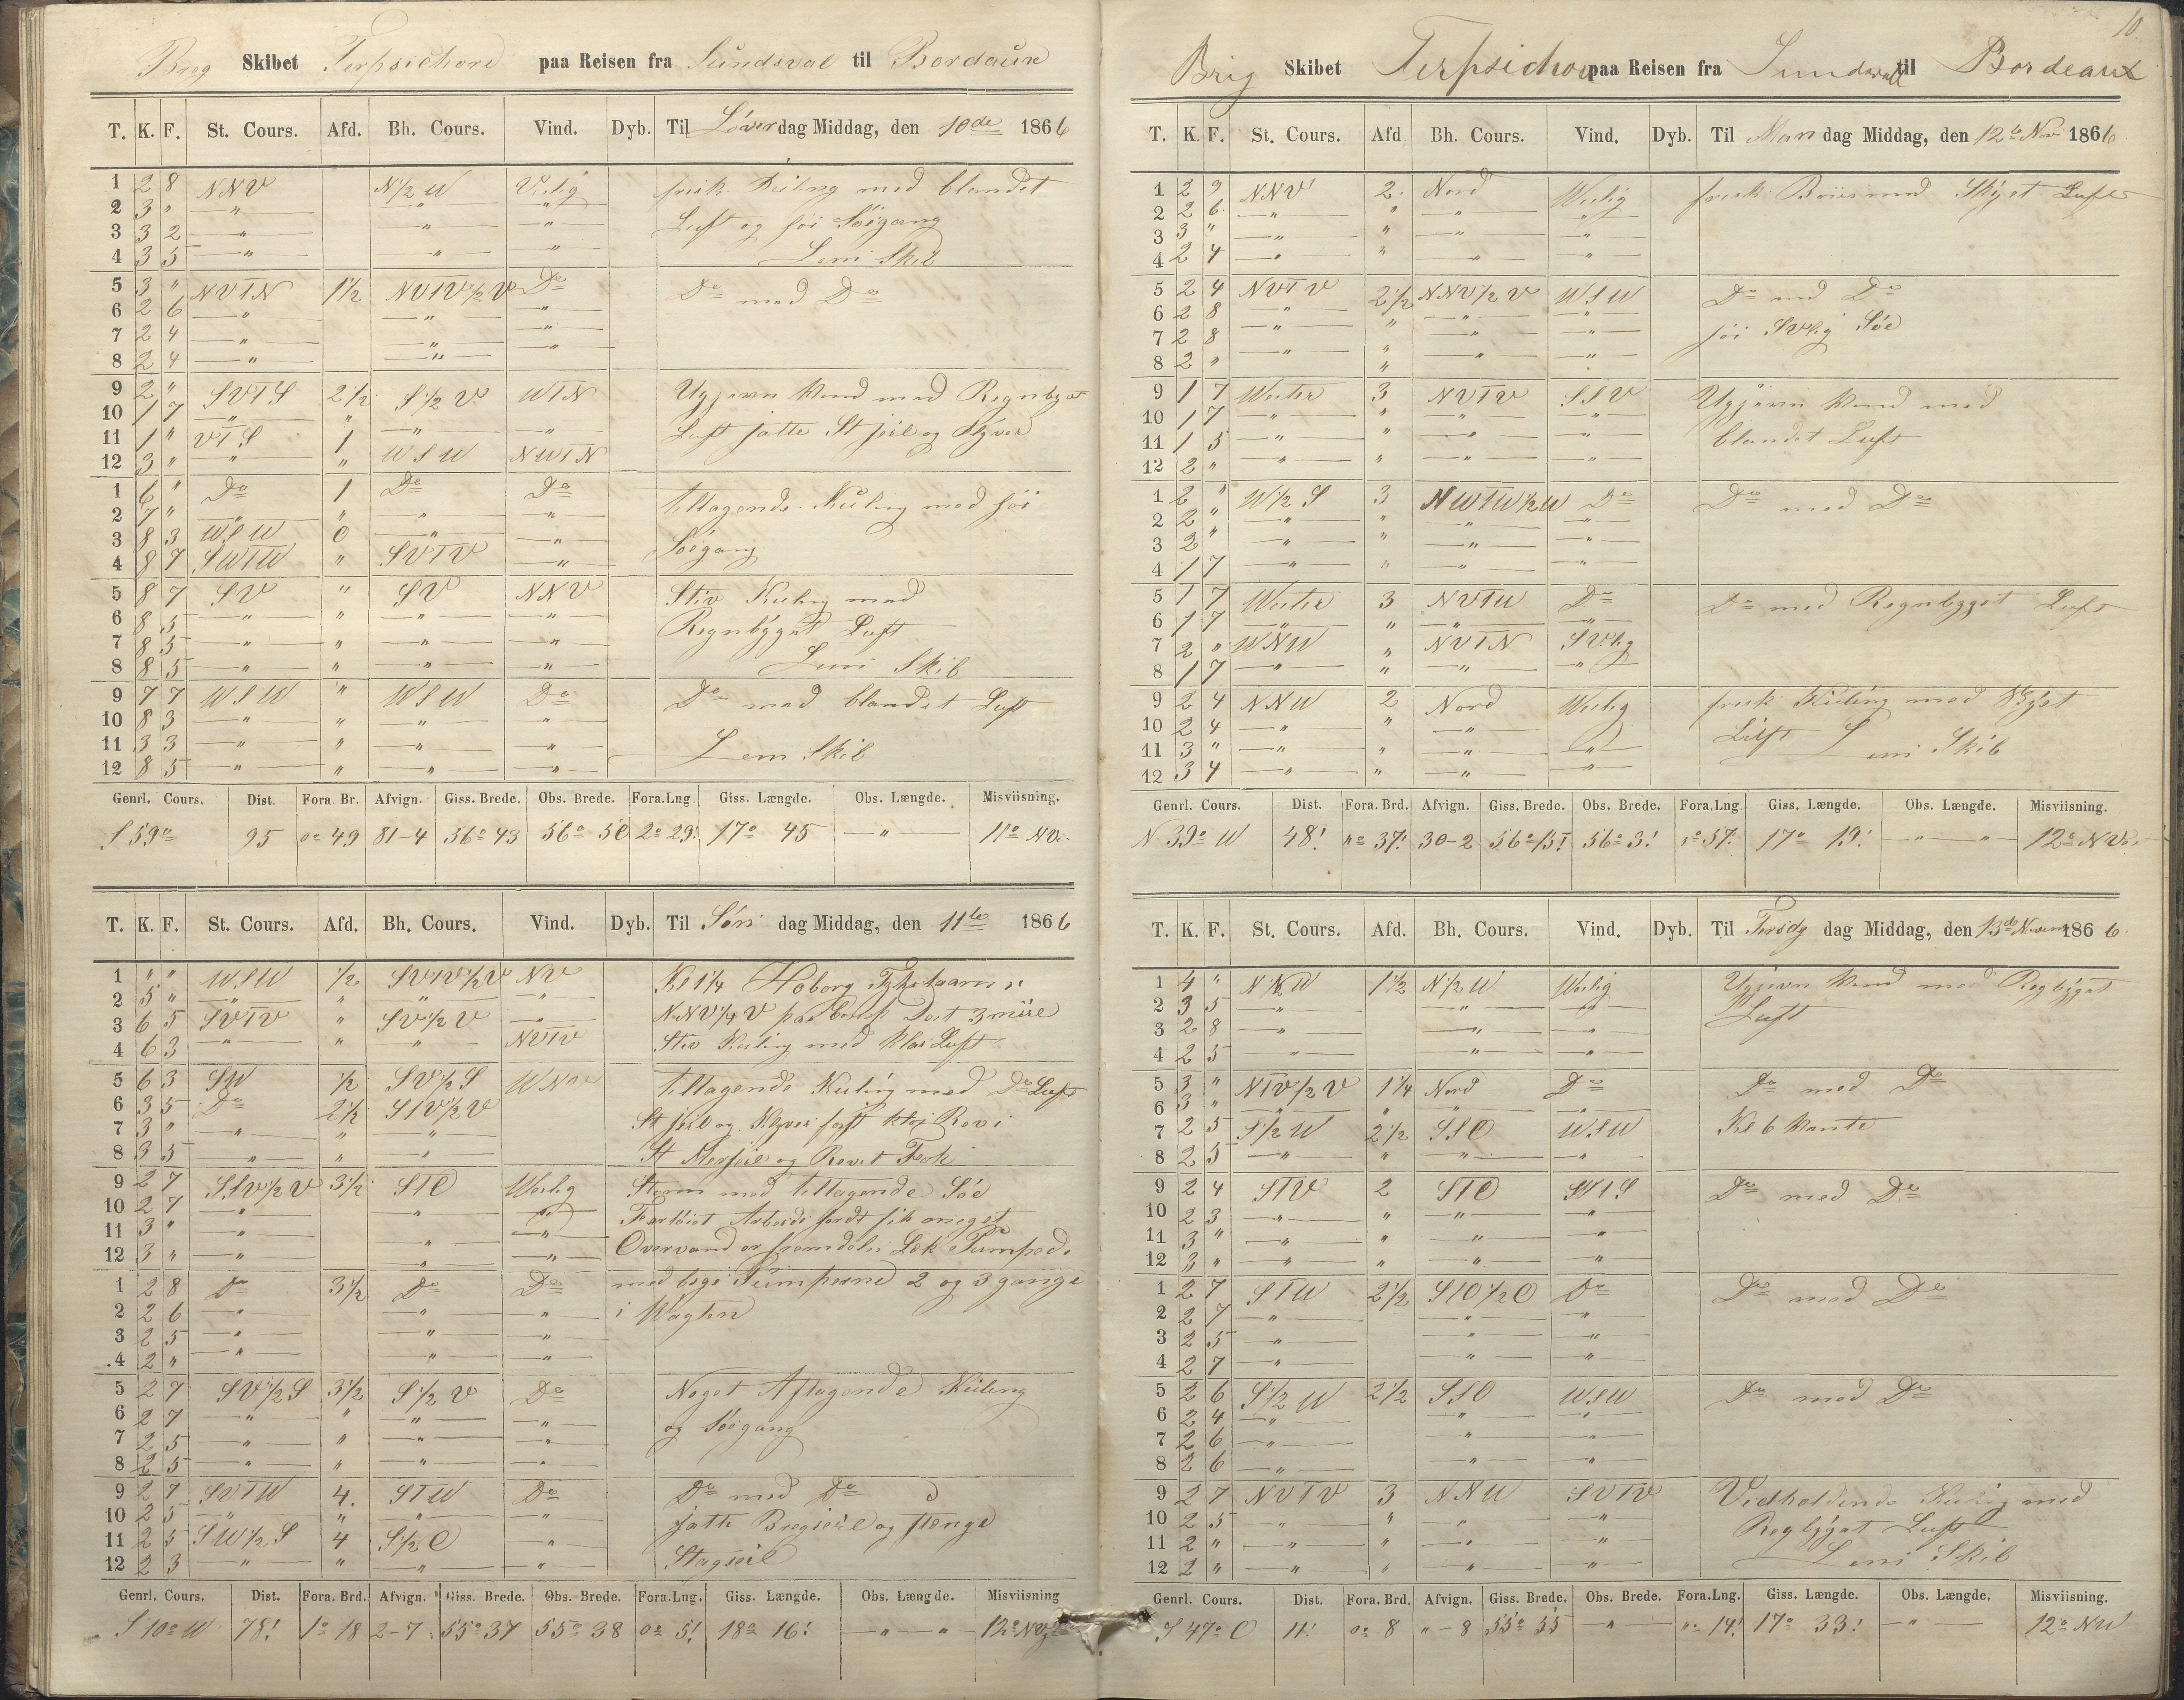 Brig Skibet Terpsichore paa Reisen fra Sundsval til Bordaux
T. K. F. St. Cours. Afd. Bh. Cours. Vind. Dyb. Til Löverdag Middag, den 10de 1866
1 2 8 NNV N½W Vestlig frisk Kuling med blandet
2 3 " " " " Luft og høi Söegang
3 3 2 " " "
4 3 5 " " " Lens Skib
5 3 " NVTN 1½ NVTV½V Do Do med Do
6 2 6 " " "
7 2 4 " " "
8 2 4 " "
9 2 " SVTS 2½ S½V WTN Ugjevn Vind med Regnbyet
10 1 7 " " " " Luft satte St seil og Klyver
11 1 " VTS 1 WSW NWTN
12 3 " " "
1 6 " Do 1 Do Do tiltagende Kuling med høi
2 7 " " " " " Söegang
3 8 3 WSW 0 " "
4 8 7 SWTW " SVTV "
5 8 7 SV " SV NNV Stiv Kuling med
6 8 5 " " " " Regnbÿget Luft
7 8 5 " " " "
8 8 5 " " " " Lens Skib
9 7 7 WSW " WSW Do Do med blandet Luft
10 8 3 " " " "
11 3 3 " " " " Lens Skib
12 8 5 " " " "
Genrl. Cours. Dist. Fora. Br. Afvign. Giss. Brede. Obs. Brede. Fora.Lng. Giss. Længde. Obs. Længde. Misviisning.
S 59° 95 0° 49 81-4 56° 43 56° 50 2° 29' 17° 45 " 11° NV.
T. K. F. St. Cours. Afd. Bh. Cours. Vind. Dyb. Til Søn dag Middag, den 11te 1866
1 " " WSW ½ SVTV½V NV Kl 1¼ Hoborg Fyhrtaarn i
2 5 " " " " " NNV¼V paa Comp Dest 3 miil
3 6 5 SVTV " SV½V " Stiv Kuling med Klar Luft
4 6 3 " " " NVTV
5 6 3 SW ½ SV½S WNW tiltagende Kuling med Do Luft
6 3 5 Do 2½ STV½V
7 3 " " " " St seil og Klyver fast Rev i
8 3 5 " " " St Merseil og Revet Fok
9 2 7 SSV½V 3½ STO Westlig Storm med tiltagende Söe
10 2 7 " " " Fartöiet Arbeide fik meget
11 3 " " " " Overvand er fremdeles Læk Pumped.
12 3 " " " "
1 2 8 Do 3½ Do Do med bege Pumperne 2 og 3 gange
2 2 6 " " " i Wagten
3 2 5 " " "
4 2 " " " "
5 2 7 SV½S 3½ S½V Do Noget Aftagende Kuling
6 2 7 " " " " og Söegang
7 2 5 " " " "
8 2 5 " " " "
9 2 7 SVTW 4. STW Do Do med Do
10 2 5 " " " " satte Bregseil og Stenge
11 2 5 SW½S 4 S½O " Stagseil
12 2 3 " " " "
Genrl. Cours. Dist. Fora. Brd. Afvign. Giss. Brede. Obs. Brede. Fora.Lng. Giss. Længde. Obs. Længde. Misviisning
S 10° W 78! 1° 18 2-7 55° 37 55° 38 0° 5! 18° 16! " " 12°
10.
Brig Skibet Terpsichore paa Reisen fra Sundsvall til Bordeaux
T. K. F. St. Cours. Afd Bh. Cours. Vind. Dyb. Til Man dag Middag, den 12te Nov 1866
1 2 9 NNV 2. Nord Westlig frisk Briis med Skÿet Luft
2 2 6 " " " "
3 3 " " " " "
4 2 4 " " " "
5 2 4 NVTV 2½ NNV½V WSW Do med Do
6 2 8 " " " " høi SVlig Söe
7 2 8 " " " "
8 2 " " " " "
9 1 7 Wester 3 NVTV SSV Ugjevn Vind med
10 1 7 " " " " blandet Luft
11 1 5 " " " "
12 2 " " " " "
1 2 " W½S 3 NWTW½W Do Do med Do
2 2 " " " " "
3 2 " " " " "
4 1 7 " " " "
5 1 7 Wester 3 NVTW Do Do med Regnbyget Luft
6 1 7 " " " "
7 2 " WNW " NVTN SVlig
8 1 7 " " " "
9 2 4 NNW 2 Nord Westlig frisk Kuling med Skÿet
10 2 4 " " " Luft
11 3 " " " " " Lens Skib
12 3 4 " " " "
Genrl. Cours. Dist. Fora. Brd. Afvign. Giss. Brede. Obs. Brede. Fora.Lng. Giss. Længde. Obs. Længde. Misviisning.
N 39° W 48! "° 37! 30-2 56° 15! 56° 3! "° 57. 17° 19! " " 12° NV.
T. K. F. St. Cours. Afd. Bh. Cours. Vind. Dyb. Til Tirsdg dag Middag, den 13de 1866.
1 4 " NNW 1½ N½W Westlig Ugjevn Vind med Regbÿget
2 3 5 " " " Luft
3 2 8 " " "
4 2 5 " " "
5 3 " NTV½V 1¼ Nord Do Do med Do
6 3 " " " " "
7 2 5 S½W 2½ SSO WSW Kl 6 Vente
8 2 5 " " " "
9 2 4 STV 2 STO Do med Do
10 2 3 " " " "
11 3 " " " " "
12 3 " " " " "
1 2 7 STW 2½ STO½O Do Do med Do
2 2 7 " " "
3 2 5 " " "
4 2 7 " " "
5 2 6 S½W 2½ SSO WSW Do med Do
6 2 4 " " "
7 2 6 " " "
8 2 6 " " "
9 2 7 NVTV 3 NNW SVTV Vedholdende Kuling med
10 2 5 " " " " Regbÿget Luft
11 2 " " " " " Lens Skib
12 2 " " " " "
Genrl. Cours. Dist. Fora. Brd. Afvign. Giss. Brede. Obs. Brede. Fora.Lng. Giss. Længde. Obs. Længde. Misviisning.
S 47° O 11! 0° 8 "-8 55° 55 " "° 14! 17° 33! " 12° NW